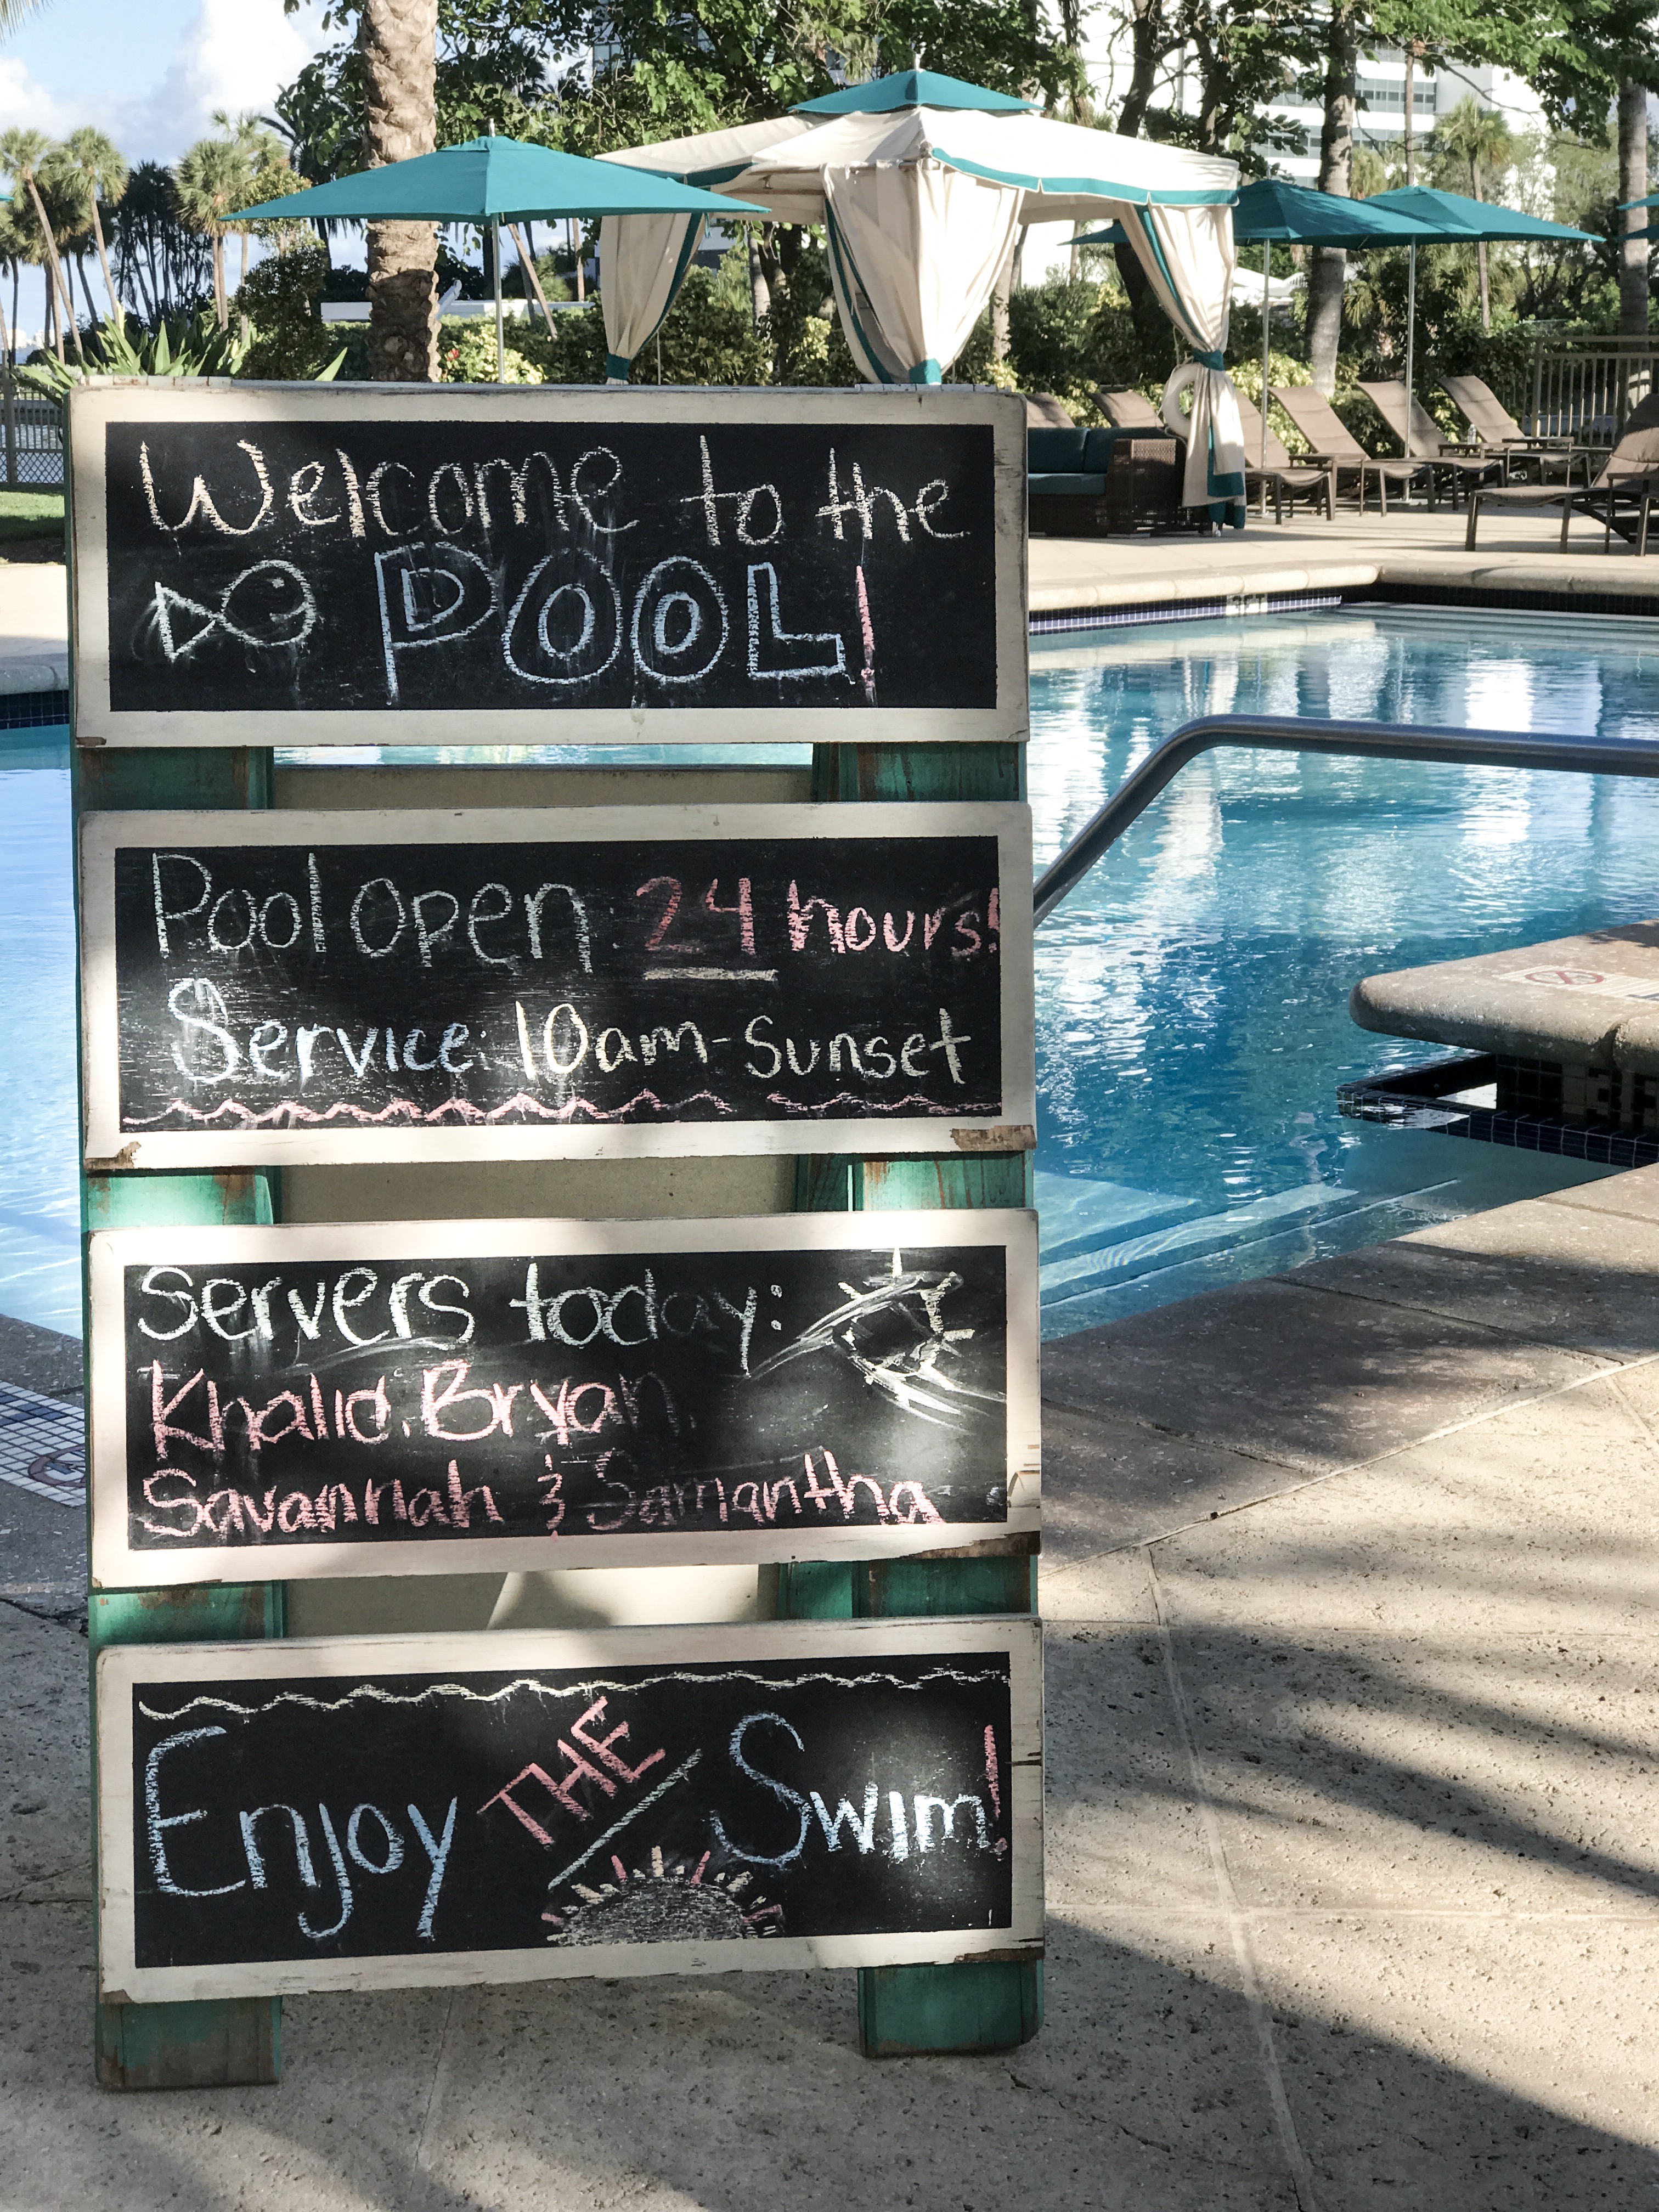 Welcome to the
POOL!
Pool open: 24 hours!
Service: 10am-Sunset
Servers today:
Khalid, Bryan,
Savannah & Samantha
Enjoy THE Swim!